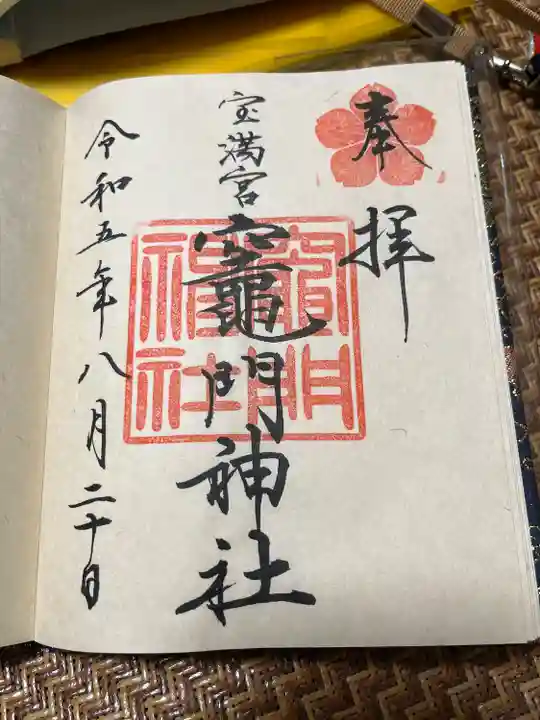 奉拝
宝満宮
竈門神社
竈門神社
令和五年八月二十日